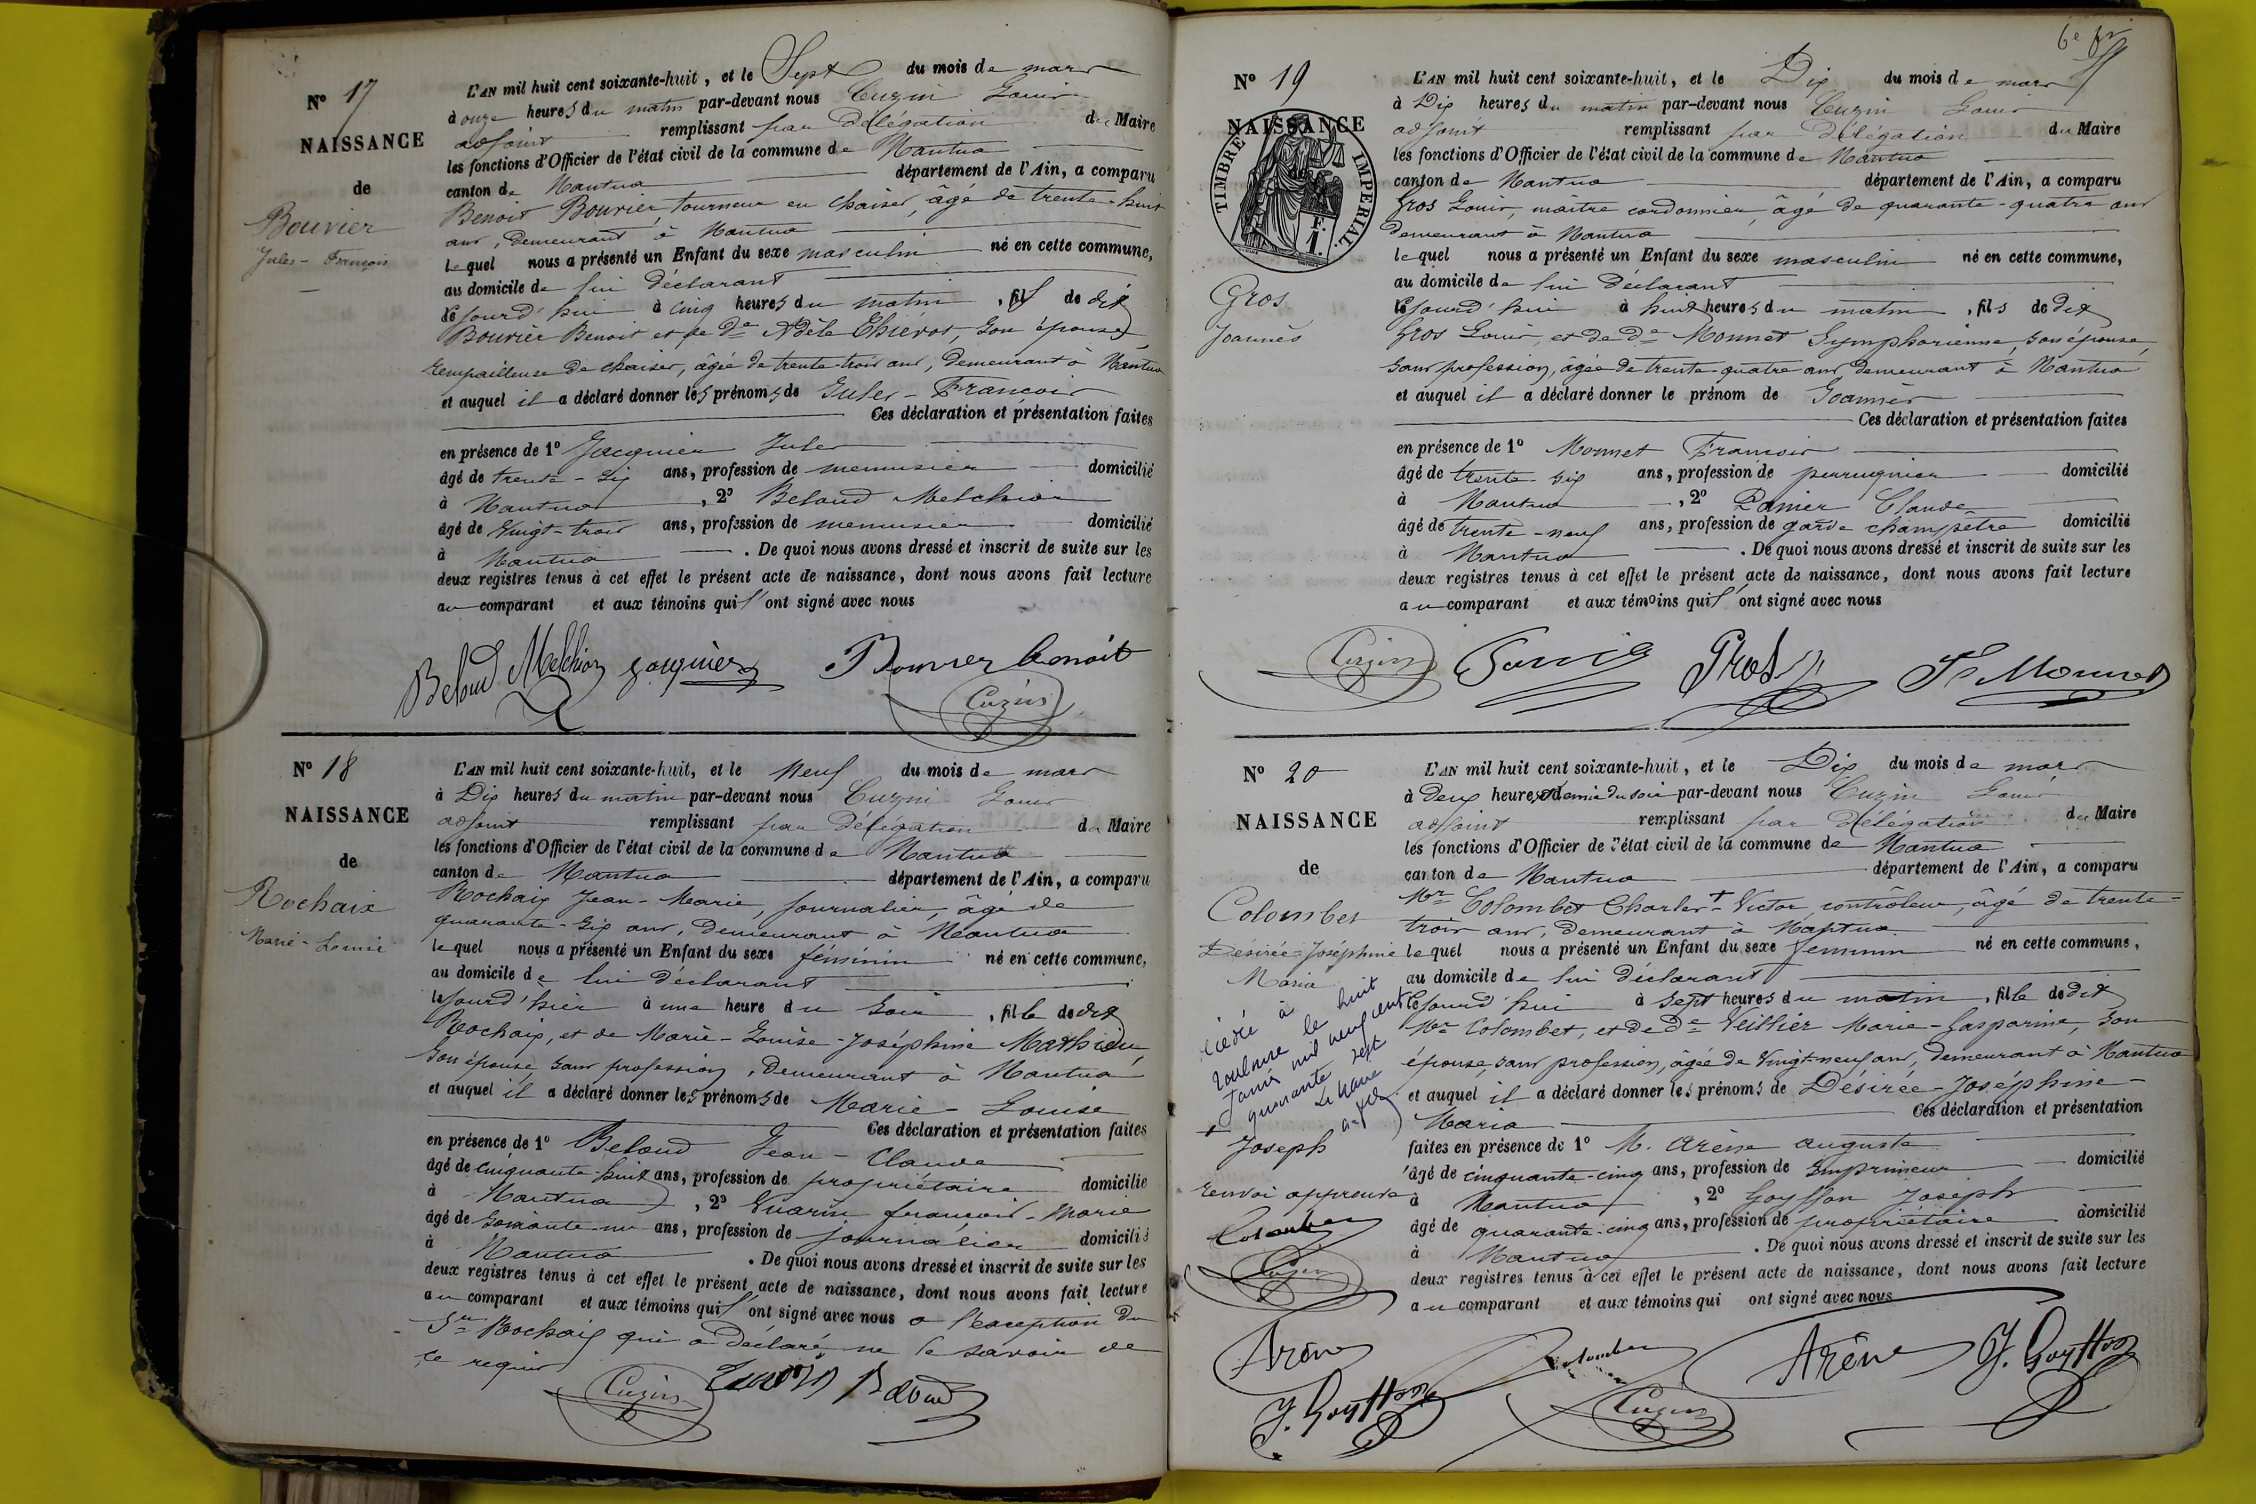 Nº 17
NAISSANCE
de
Bouvier
Jules - François
L'AN mil huit cent soixante-huit, et le Sept du mois de mars
à onze heures du matin par-devant nous Cuzin Louis
adjoint remplissant par Délégation du Maire
les fonctions d'Officier de l'état civil de la commune de Nantua
canton de Nantua département de l'Ain, a comparu
Benoit Bouvier, tourneur en chaises, âgé de trente-huit
ans, demeurant à Nantua
lequel nous a présenté un Enfant du sexe masculin né en cette commune,
au domicile de lui déclarant
cejourd'hui à cinq heures du matin, fils de dit
Bouvier Benoit et de De Adèle Thiévot, son épouse,
rempailleuse de chaises, âgée de trente-trois ans, demeurant à Nantua
et auquel il a déclaré donner les prénoms de Jules - François
Ces déclaration et présentation faites
en présence de 1º Jacquier Jules
âgé de trente-six ans, profession de menuisier domicilié
à Nantua, 2º Beloud Melchior
âgé de vingt-trois ans, profession de menuisier domicilié
à Nantua. De quoi nous avons dressé et inscrit de suite sur les
deux registres tenus à cet effet le présent acte de naissance, dont nous avons fait lecture
au comparant et aux témoins qui l'ont signé avec nous
Beloud Melchior Jacquier Bouvier benoit
Cuzin
Nº 18
NAISSANCE
de
Rochaix
Marie - Louise
L'AN mil huit cent soixante-huit, et le neuf du mois de mars
à Dix heures du matin par-devant nous Cuzin Louis
adjoint remplissant par Délégation du Maire
les fonctions d'Officier de l'état civil de la commune de Nantua
canton de Nantua département de l'Ain, a comparu
Rochaix Jean-Marie, journalier, âgé de
quarante-six ans, demeurant à Nantua
lequel nous a présenté un Enfant du sexe féminin né en cette commune,
au domicile de lui déclarant
le jour d'hier à une heure du soir, fille de dit
Rochaix, et de Marie-Louise-Joséphine Mathieu,
son épouse, sans profession, demeurant à Nantua
et auquel il a déclaré donner les prénoms de Marie - Louise
Ces déclaration et présentation faites
en présence de 1º Beloud Jean-Claude
âgé de cinquante-huit ans, profession de propriétaire domicilié
à Nantua, 2º Vuarin françois-Marie
âgé de soixante-un ans, profession de journalier domicilié
à Nantua. De quoi nous avons dressé et inscrit de suite sur les
deux registres tenus à cet effet le présent acte de naissance, dont nous avons fait lecture
au comparant et aux témoins qui l'ont signé avec nous à l'exception du
Sr Rochaix qui a déclaré ne le savoir de
ce requis
Cuzin Vuarin Beloud
6e
Nº 19
NAISSANCE
TIMBRE IMPERIAL.
F.
1.
Gros
Joannès
L'AN mil huit cent soixante-huit, et le Dix du mois de mars
à Dix heures du matin par-devant nous Cuzin Louis
adjoint remplissant par Délégation du Maire
les fonctions d'Officier de l'état civil de la commune de Nantua
canton de Nantua département de l'Ain, a comparu
Gros Louis, maître cordonnier, âgé de quarante-quatre ans
demeurant à Nantua
lequel nous a présenté un Enfant du sexe masculin né en cette commune,
au domicile de lui déclarant
cejourd'hui à huit heures du matin, fils de dit
Gros Louis, et de De Monnet Symphorienne, son épouse,
sans profession, âgée de trente-quatre ans demeurant à Nantua
et auquel il a déclaré donner le prénom de Joannès
Ces déclaration et présentation faites
en présence de 1º Monnet François
âgé de trente six ans, profession de perruquier domicilié
à Nantua, 2º Panier Claude
âgé de trente-neuf ans, profession de garde champêtre domicilié
à Nantua. De quoi nous avons dressé et inscrit de suite sur les
deux registres tenus à cet effet le présent acte de naissance, dont nous avons fait lecture
au comparant et aux témoins qui l'ont signé avec nous
Cuzin Gros Fs Monnet
Nº 20
NAISSANCE
de
Colombet
Désirée-Joséphine
Maria
Décédée à
Toulouse le huit
Janvier mil neuf cent
quarante sept
Le Maire
+ Joseph
renvoi approuvé
Colombet
Cuzin
Arène
J. Goyffon
L'AN mil huit cent soixante-huit, et le Dix du mois de mars
à Deux heures et demie du soir par-devant nous Cuzin Louis
adjoint remplissant par Délégation du Maire
les fonctions d'Officier de l'état civil de la commune de Nantua
canton de Nantua département de l'Ain, a comparu
Mr Colombet Charles + Victor contrôleur, âgé de trente-
trois ans, demeurant à Nantua
lequel nous a présenté un Enfant du sexe féminin né en cette commune,
au domicile de lui déclarant
cejourd'hui à sept heures du matin, fille de dit
Mr Colombet, et de De Veillier Marie-Gasparine, son
épouse sans profession, âgée de vingt-neuf ans, demeurant à Nantua
et auquel il a déclaré donner les prénoms de Désirée-Joséphine-
Maria Ces déclaration et présentation
faites en présence de 1º M. Arène auguste
âgé de cinquante-cinq ans, profession de Imprimeur domicilié
à Nantua, 2º Goyffon Joseph
âgé de quarante-cinq ans, profession de propriétaire domicilié
à Nantua. De quoi nous avons dressé et inscrit de suite sur les
deux registres tenus à cet effet le présent acte de naissance, dont nous avons fait lecture
au comparant et aux témoins qui ont signé avec nous
Colombet Arène J. Goyffon
Cuzin